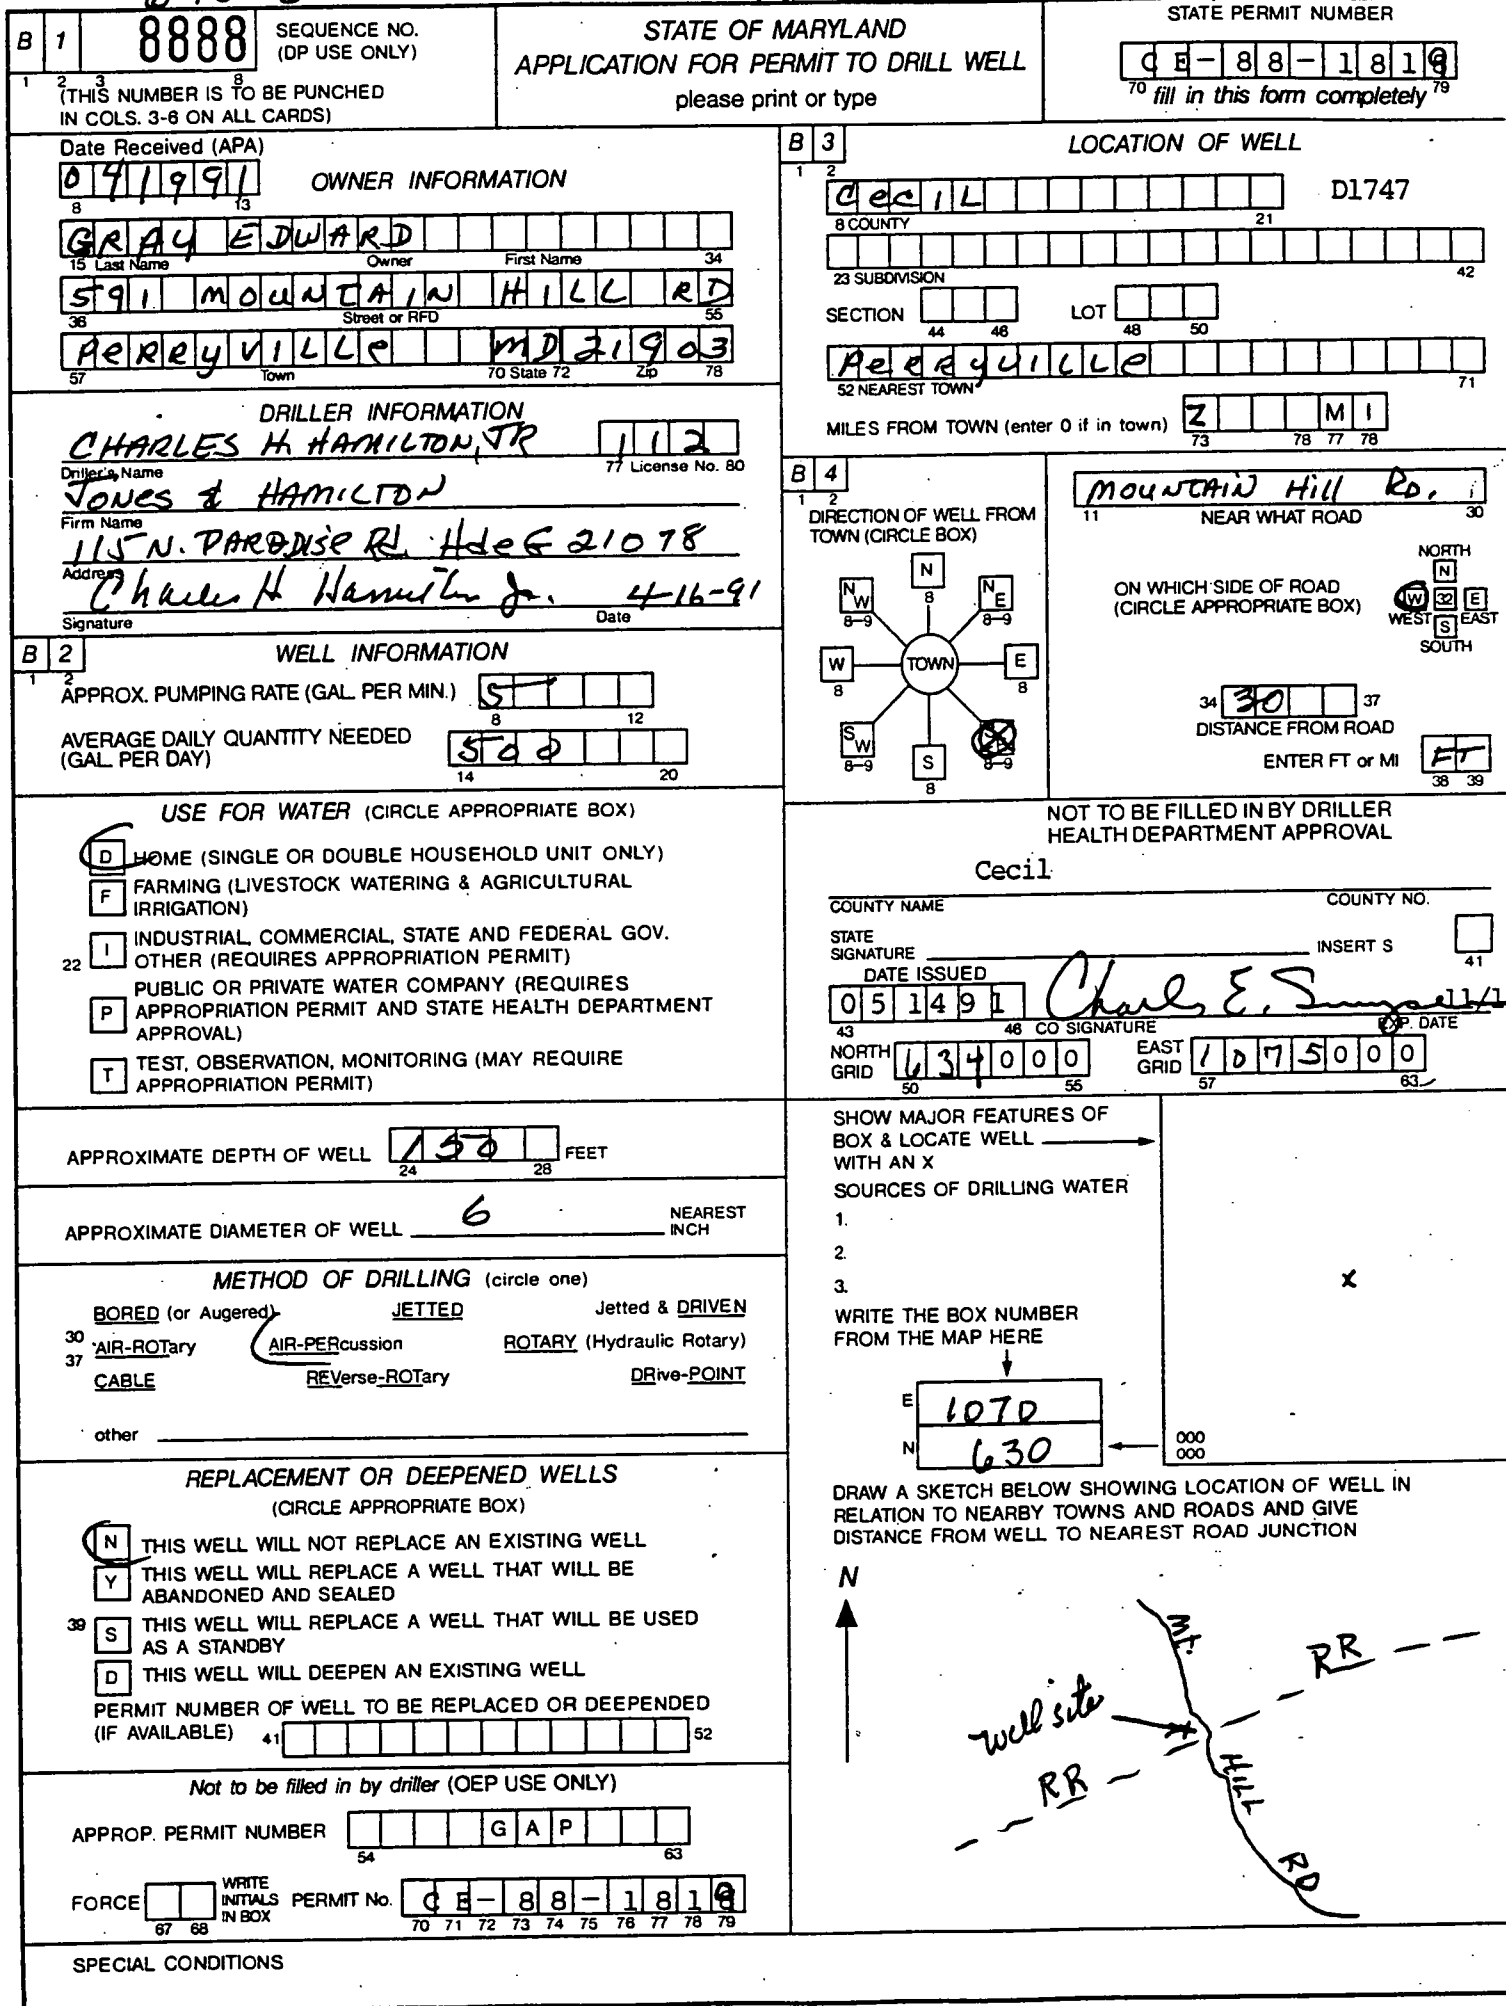 B 1 8888 SEQUENCE NO.
(DP USE ONLY)
1 2 3 8
(THIS NUMBER IS TO BE PUNCHED
IN COLS. 3-6 ON ALL CARDS)
STATE OF MARYLAND
APPLICATION FOR PERMIT TO DRILL WELL
please print or type
STATE PERMIT NUMBER
CE-88-181
70 fill in this form completely 79
Date Received (APA)
041991
8 13
OWNER INFORMATION
GRAY EDWARD
15 Last Name Owner First Name 34
591 MOUNTAIN HILL RD
36 Street or RFD 55
PeRRyVILLe MD 21903
57 Town 70 State 72 Zip 78
DRILLER INFORMATION
CHARLES H. HAMILTON, JR 112
Driller's Name 77 License No. 80
JONES & HAMILTON
Firm Name
115 N. PARADISE Rd. HdeG 21078
Address
Charles H Hamilton Jr. 4-16-91
Signature Date
B 2 WELL INFORMATION
1 2
APPROX. PUMPING RATE (GAL. PER MIN.) 5
8 12
AVERAGE DAILY QUANTITY NEEDED
(GAL. PER DAY) 500
14 20
USE FOR WATER (CIRCLE APPROPRIATE BOX)
D HOME (SINGLE OR DOUBLE HOUSEHOLD UNIT ONLY)
F FARMING (LIVESTOCK WATERING & AGRICULTURAL
IRRIGATION)
22 I INDUSTRIAL, COMMERCIAL, STATE AND FEDERAL GOV.
OTHER (REQUIRES APPROPRIATION PERMIT)
P PUBLIC OR PRIVATE WATER COMPANY (REQUIRES
APPROPRIATION PERMIT AND STATE HEALTH DEPARTMENT
APPROVAL)
T TEST, OBSERVATION, MONITORING (MAY REQUIRE
APPROPRIATION PERMIT)
APPROXIMATE DEPTH OF WELL 150 FEET
24 28
APPROXIMATE DIAMETER OF WELL 6 NEAREST
INCH
METHOD OF DRILLING (circle one)
BORED (or Augered) JETTED Jetted & DRIVEN
30 AIR-ROTary AIR-PERcussion ROTARY (Hydraulic Rotary)
37
CABLE REVerse-ROTary DRive-POINT
other
REPLACEMENT OR DEEPENED WELLS
(CIRCLE APPROPRIATE BOX)
N THIS WELL WILL NOT REPLACE AN EXISTING WELL
Y THIS WELL WILL REPLACE A WELL THAT WILL BE
ABANDONED AND SEALED
39 S THIS WELL WILL REPLACE A WELL THAT WILL BE USED
AS A STANDBY
D THIS WELL WILL DEEPEN AN EXISTING WELL
PERMIT NUMBER OF WELL TO BE REPLACED OR DEEPENDED
(IF AVAILABLE) 41 52
Not to be filled in by driller (OEP USE ONLY)
APPROP. PERMIT NUMBER GAP
54 63
FORCE WRITE
INITIALS
IN BOX PERMIT No. CE-88-181
67 68 70 71 72 73 74 75 76 77 78 79
SPECIAL CONDITIONS
B 3 LOCATION OF WELL
1 2
CeciL D1747
8 COUNTY 21
23 SUBDIVISION 42
SECTION LOT
44 46 48 50
PeRRyVILLe
52 NEAREST TOWN 71
MILES FROM TOWN (enter 0 if in town) 2 MI
73 76 77 78
B 4
1 2
DIRECTION OF WELL FROM
TOWN (CIRCLE BOX)
N
8
NW NE
8-9 8-9
W TOWN E
8 8
SW SE
8-9 8-9
S
8
MOUNTAIN Hill RD.
11 NEAR WHAT ROAD 30
ON WHICH SIDE OF ROAD
(CIRCLE APPROPRIATE BOX)
NORTH
N
W 32 E
WEST EAST
S
SOUTH
34 30 37
DISTANCE FROM ROAD
ENTER FT or MI FT
38 39
NOT TO BE FILLED IN BY DRILLER
HEALTH DEPARTMENT APPROVAL
Cecil
COUNTY NAME COUNTY NO.
STATE
SIGNATURE INSERT S
41
DATE ISSUED
051491 Charles E. 11/1
43 48 CO SIGNATURE EXP. DATE
NORTH
GRID 634000
50 55
EAST
GRID 1075000
57 63
SHOW MAJOR FEATURES OF
BOX & LOCATE WELL
WITH AN X
SOURCES OF DRILLING WATER
1.
2.
3.
x
WRITE THE BOX NUMBER
FROM THE MAP HERE
E 1070
N 630
000
000
DRAW A SKETCH BELOW SHOWING LOCATION OF WELL IN
RELATION TO NEARBY TOWNS AND ROADS AND GIVE
DISTANCE FROM WELL TO NEAREST ROAD JUNCTION
N
Mt.
RR
well site
X
RR
HILL
RD